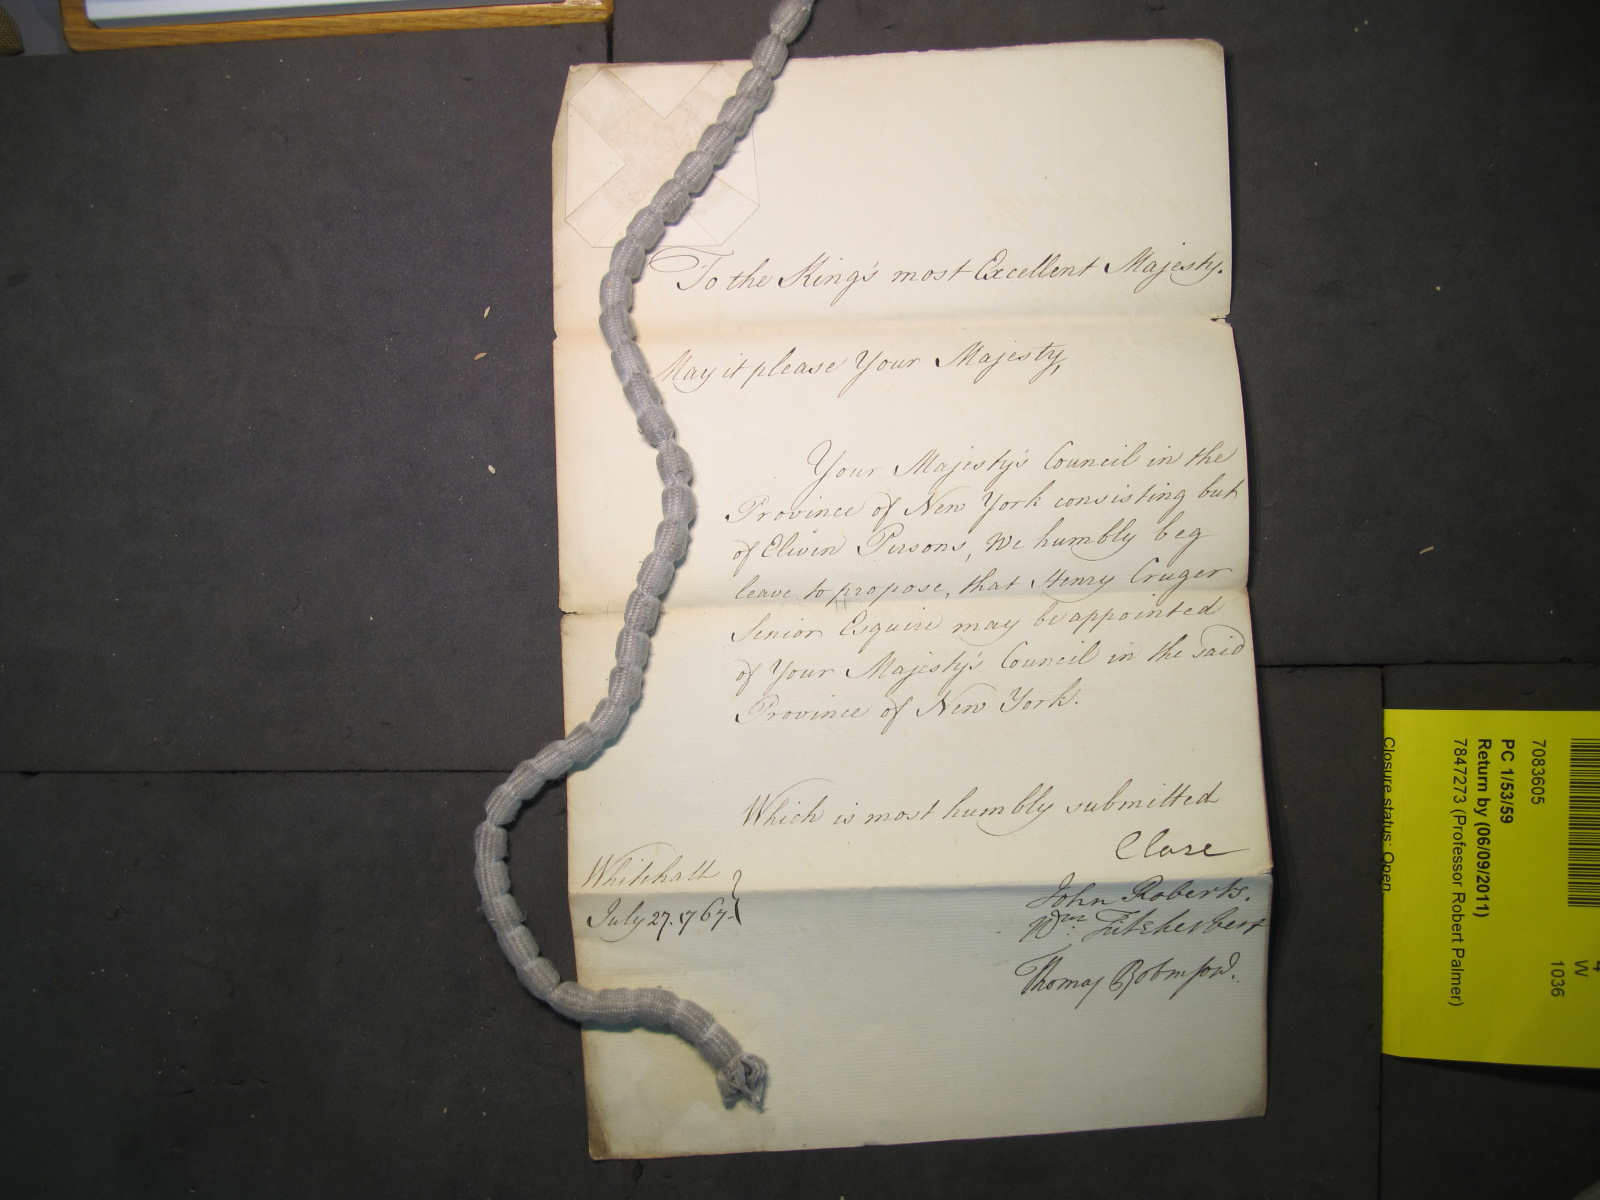 To the King's most Excellent Majesty.
May it please Your Majesty,
Your Majesty's Council in the
Province of New York consisting but
of Eleven Persons, We humbly beg
leave to propose, that Henry Cruger
Senior Esquire may be appointed
of Your Majesty's Council in the said
Province of New York.
Which is most humbly submitted
Clare
Whitehall
July 27. 1767.
John Roberts.
Wm: Fitzherbert
Thomas Robinson.
7083605
PC 1/53/59
Return by (06/09/2011)
7847273 (Professor Robert Palmer)
Closure status: Open
W
1036